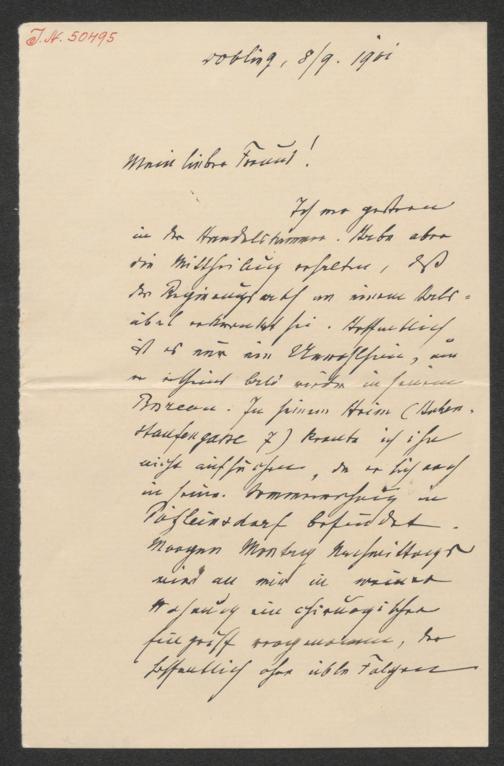 J. N. 50495
Döbling, 8/9. 1901
Mein lieber Freund!
Ich war gestern
in der Handelskammer. Habe aber
die Mittheilung erhalten, daß
der Regierungsrath an einem Hals-
übel erkrankt sei. Hoffentlich
ist es nur ein Unwohlsein, und
er erscheint bald wieder in seinem
Bureau. In seinem Heim (Hohen-
staufengasse 7) konnte ich ihn
nicht aufsuchen, da er sich noch
in seiner Sommerwohnung in
Pötzleinsdorf befindet.
Morgen Montag Nachmittags
wird an mir in meiner
Wohnung ein chirurgischer
Eingriff vorgenommen, der
hoffentlich ohne üble Folgen